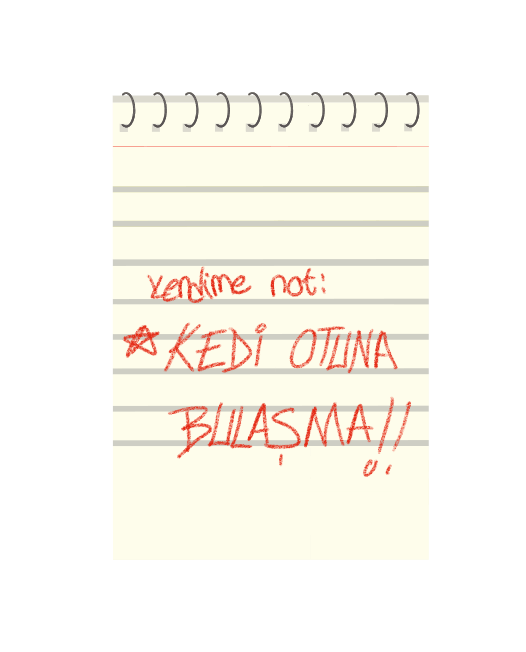 kendime not:
KEDİ OTUNA
BULAŞMA!!